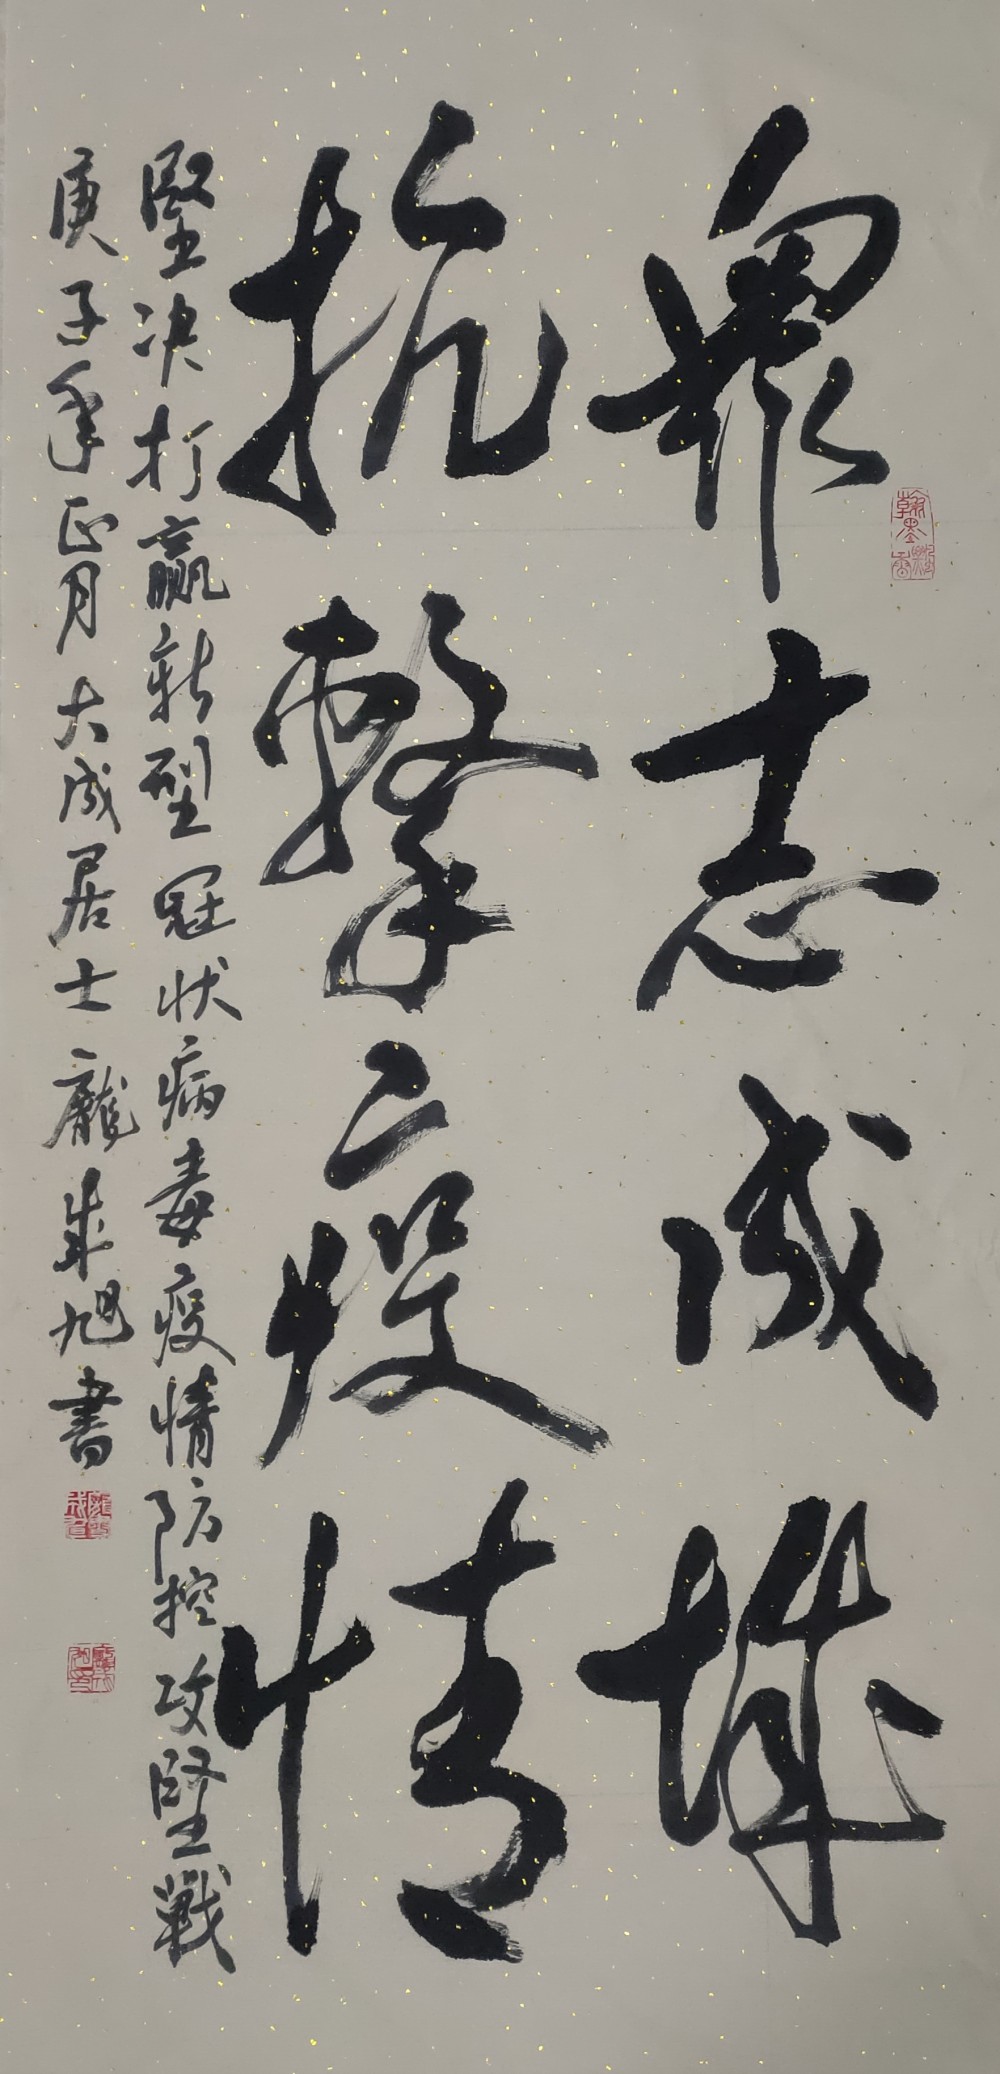 衆志成城
抗擊疫情
堅决打贏新型冠状病毒疫情防控攻堅戰
庚子年正月大成居士龐成旭書
翰墨飘香